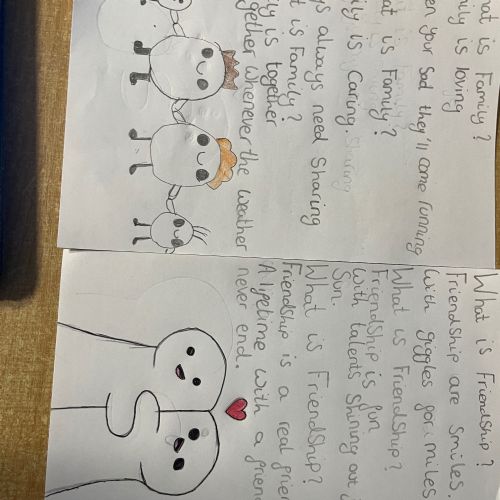 hat is Family?
mily is loving
en your sad they'll come running
hat is Family?
ily is Caring.
ys always need Sharing
t is Family?
ily is together
gether Whenever the weather
What is Friendship?
Friendship are smiles
With giggles for miles
What is Friendship?
Friendship is fun
with talents Shining out
Sun.
What is Friendship?
Friendship is a real frie
A lifetime with a frien
never end.